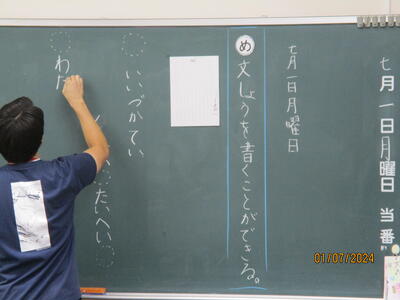 七月一日月曜日 当番
七月一日月曜日
め 文しょうを書くことができる。
いいづかてい
たいへい
わた
01/07/2024